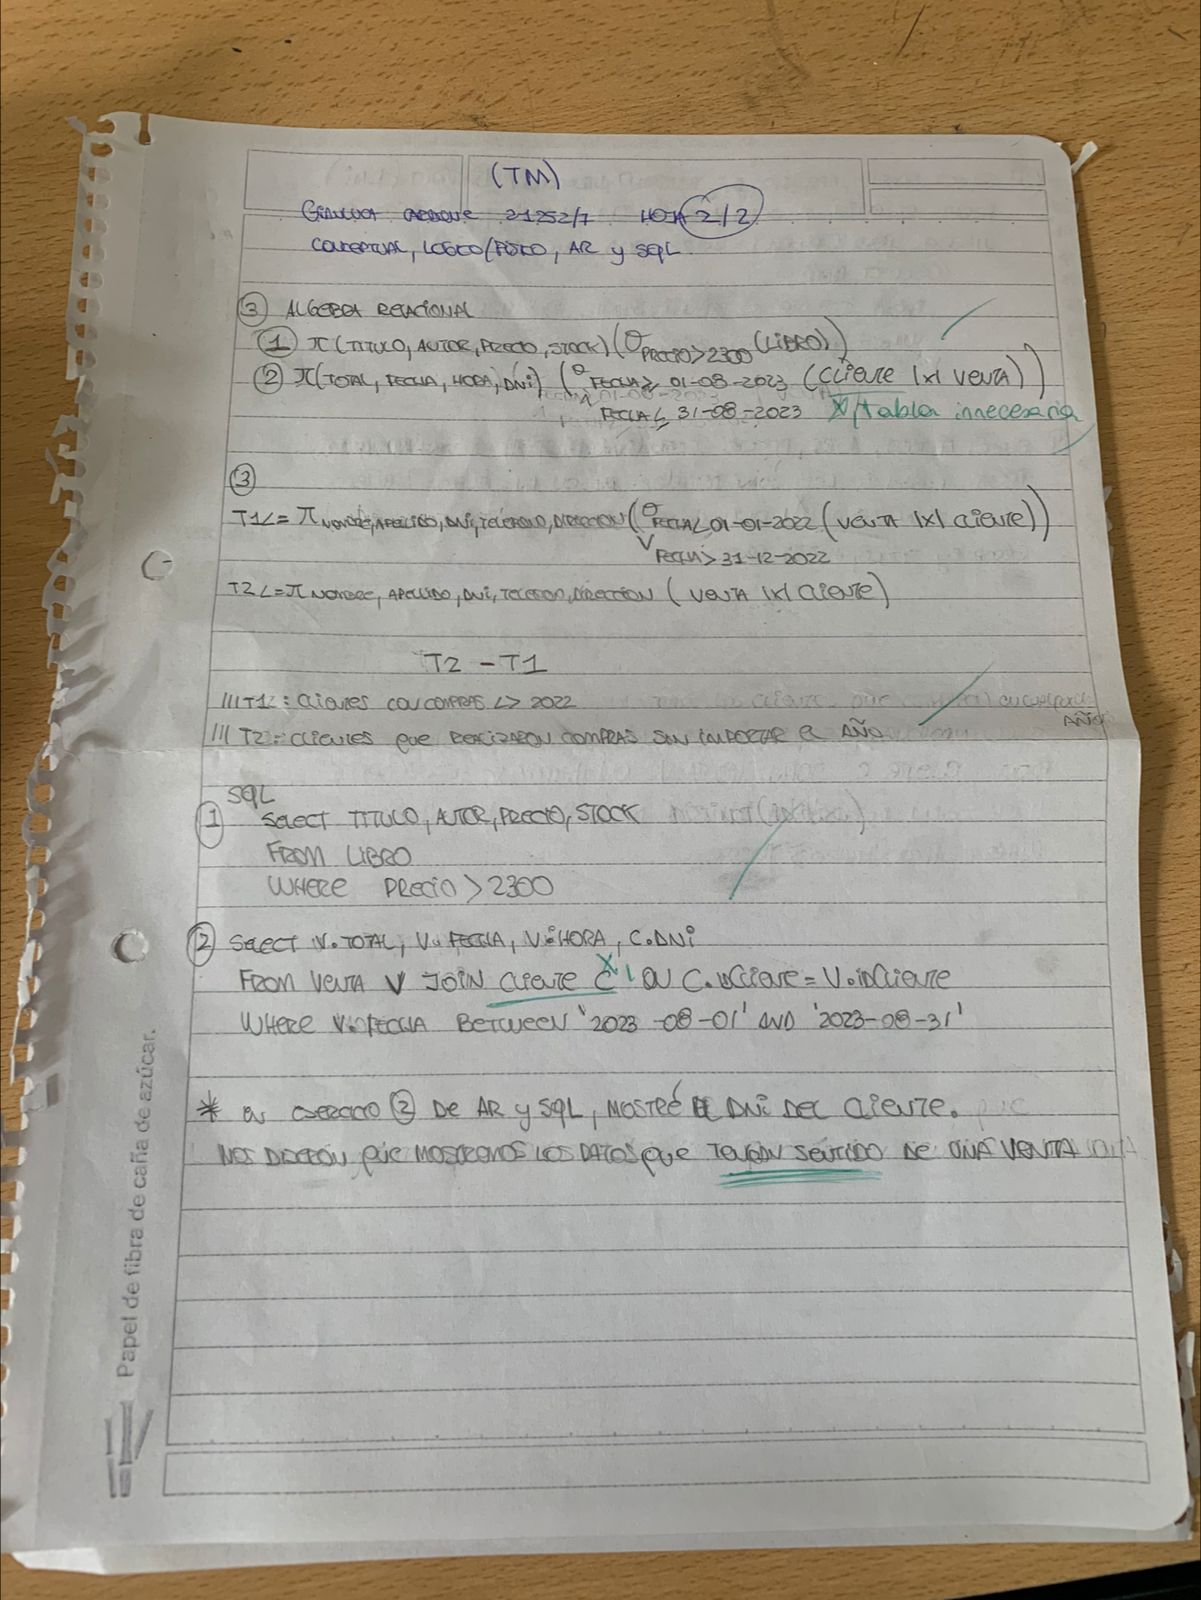 (TM)
21252/7 HOJA 2/2
CONCEPTUAL, LOGICO/FISICO, AR y SQL
③ ALGEBRA RELACIONAL
① π (TITULO, AUTOR, PRECIO, STOCK) (σ PRECIO > 2300 (LIBRO))
② π (TOTAL, FECHA, HORA, DNI) (σ FECHA ≥ 01-08-2023 (CLIENTE |X| VENTA))
^ FECHA ≤ 31-08-2023 X/tabla innecesaria
③
T1 <= π NOMBRE, APELLIDO, DNI, TELEFONO, DIRECCION (σ FECHA < 01-01-2022 (VENTA |X| CLIENTE))
V FECHA > 31-12-2022
T2 <= π NOMBRE, APELLIDO, DNI, TELEFONO, DIRECCION (VENTA |X| CLIENTE)
T2 - T1
/// T1: CLIENTES CON COMPRAS <> 2022
/// T2: CLIENTES QUE REALIZARON COMPRAS SIN IMPORTAR EL AÑO
AÑO
SQL
① SELECT TITULO, AUTOR, PRECIO, STOCK
FROM LIBRO
WHERE PRECIO > 2300
② SELECT V.TOTAL, V.FECHA, V.HORA, C.DNI
FROM VENTA V JOIN CLIENTE C ON C.IDCLIENTE = V.IDCLIENTE
WHERE V.FECHA BETWEEN '2023-08-01' AND '2023-08-31'
* EN EJERCICIO ② DE AR y SQL, MOSTRÉ EL DNI DEL CLIENTE.
NOS DIJERON QUE MOSTREMOS LOS DATOS QUE TENGAN SENTIDO DE UNA VENTA
Papel de fibra de caña de azúcar.